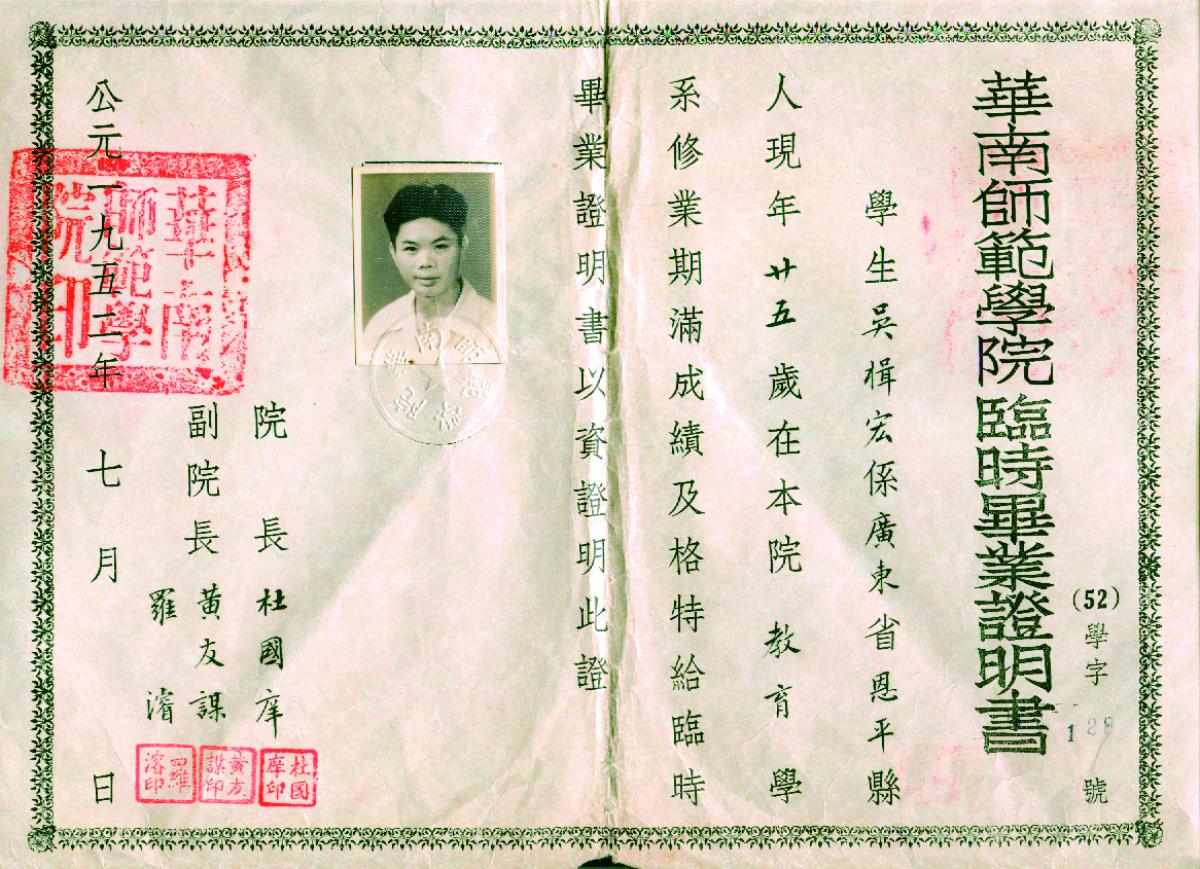 華南師範學院臨時畢業證明書
(52)學字128號
學生吳楫宏係廣東省恩平縣
人現年廿五歲在本院教育學
系修業期滿成績及格特給臨時
畢業證明書以資證明此證
院長杜國庠
副院長黃友謀
羅濬
公元一九五二年七月日
華南師範學院印
華南師範學院
杜國庠印
黃友謀印